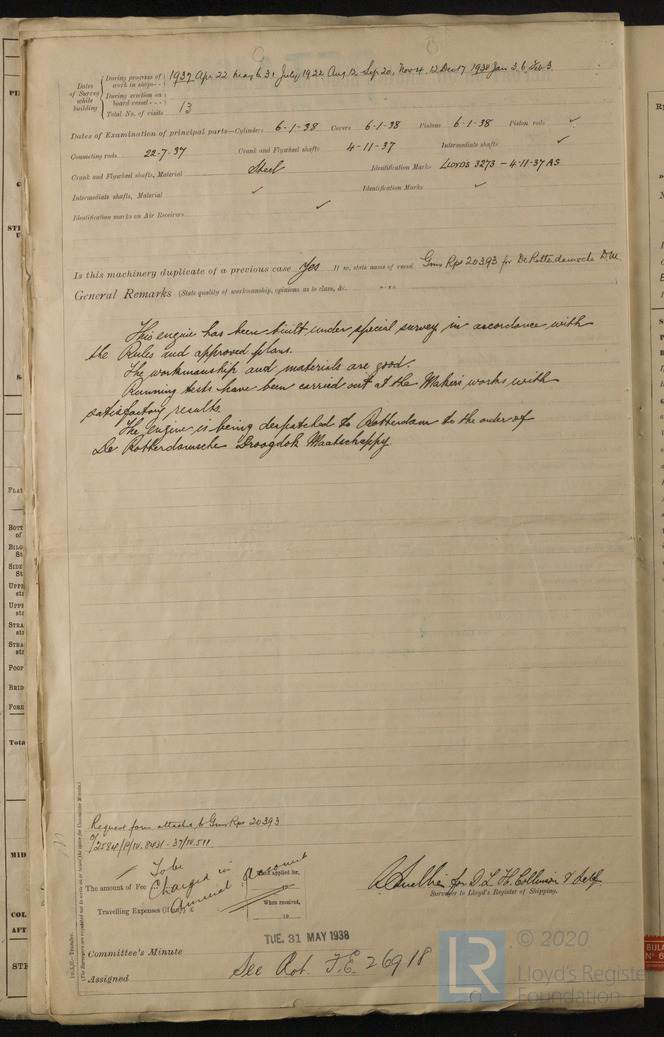 Dates of Survey while building
During progress of work in shops - - 1937 Apr. 22 May 6. 31 July 19.22. Aug. 12 Sep. 20, Nov 4. 12 Dec 17 1938 Jan 3. 6. Feb 3.
During erection on board vessel - - -
Total No. of visits 13
Dates of Examination of principal parts—Cylinders 6-1-38 Covers 6-1-38 Pistons 6-1-38 Piston rods ✓
Connecting rods 22-7-37 Crank and Flywheel shafts 4-11-37 Intermediate shafts ✓
Crank and Flywheel shafts, Material Steel Identification Marks LLOYDS 3273 - 4-11-37 AS
Intermediate shafts, Material ✓ Identification Marks ✓
Identification marks on Air Receivers ✓
Is this machinery duplicate of a previous case Yes If so, state name of vessel Gms Rpt 20393 for De Rotterdamsche D.M.
General Remarks (State quality of workmanship, opinions as to class, &c.
This engine has been built under special survey in accordance with
the Rules and approved plans.
The workmanship and materials are good.
Running tests have been carried out at the Makers works with
satisfactory results.
The Engine is being despatched to Rotterdam to the order of
De Rotterdamsche Droogdok Maatschappy.
Request form attached to Gms Rpt 20393
The amount of Fee To be Charged in General Account
applied for,
19
Travelling Expenses (if any) £
When received,
19
for D. L. H. Collinson & Self
Surveyor to Lloyd's Register of Shipping.
TUE. 31 MAY 1938
Committee's Minute
Assigned See Rot. F.E. 26918
© 2020
LR
Lloyd's Register
Foundation